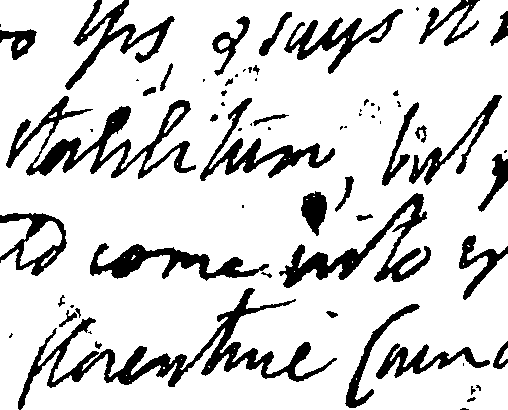 yrs, & says it
stabilitum, but
come into
florentine Counc